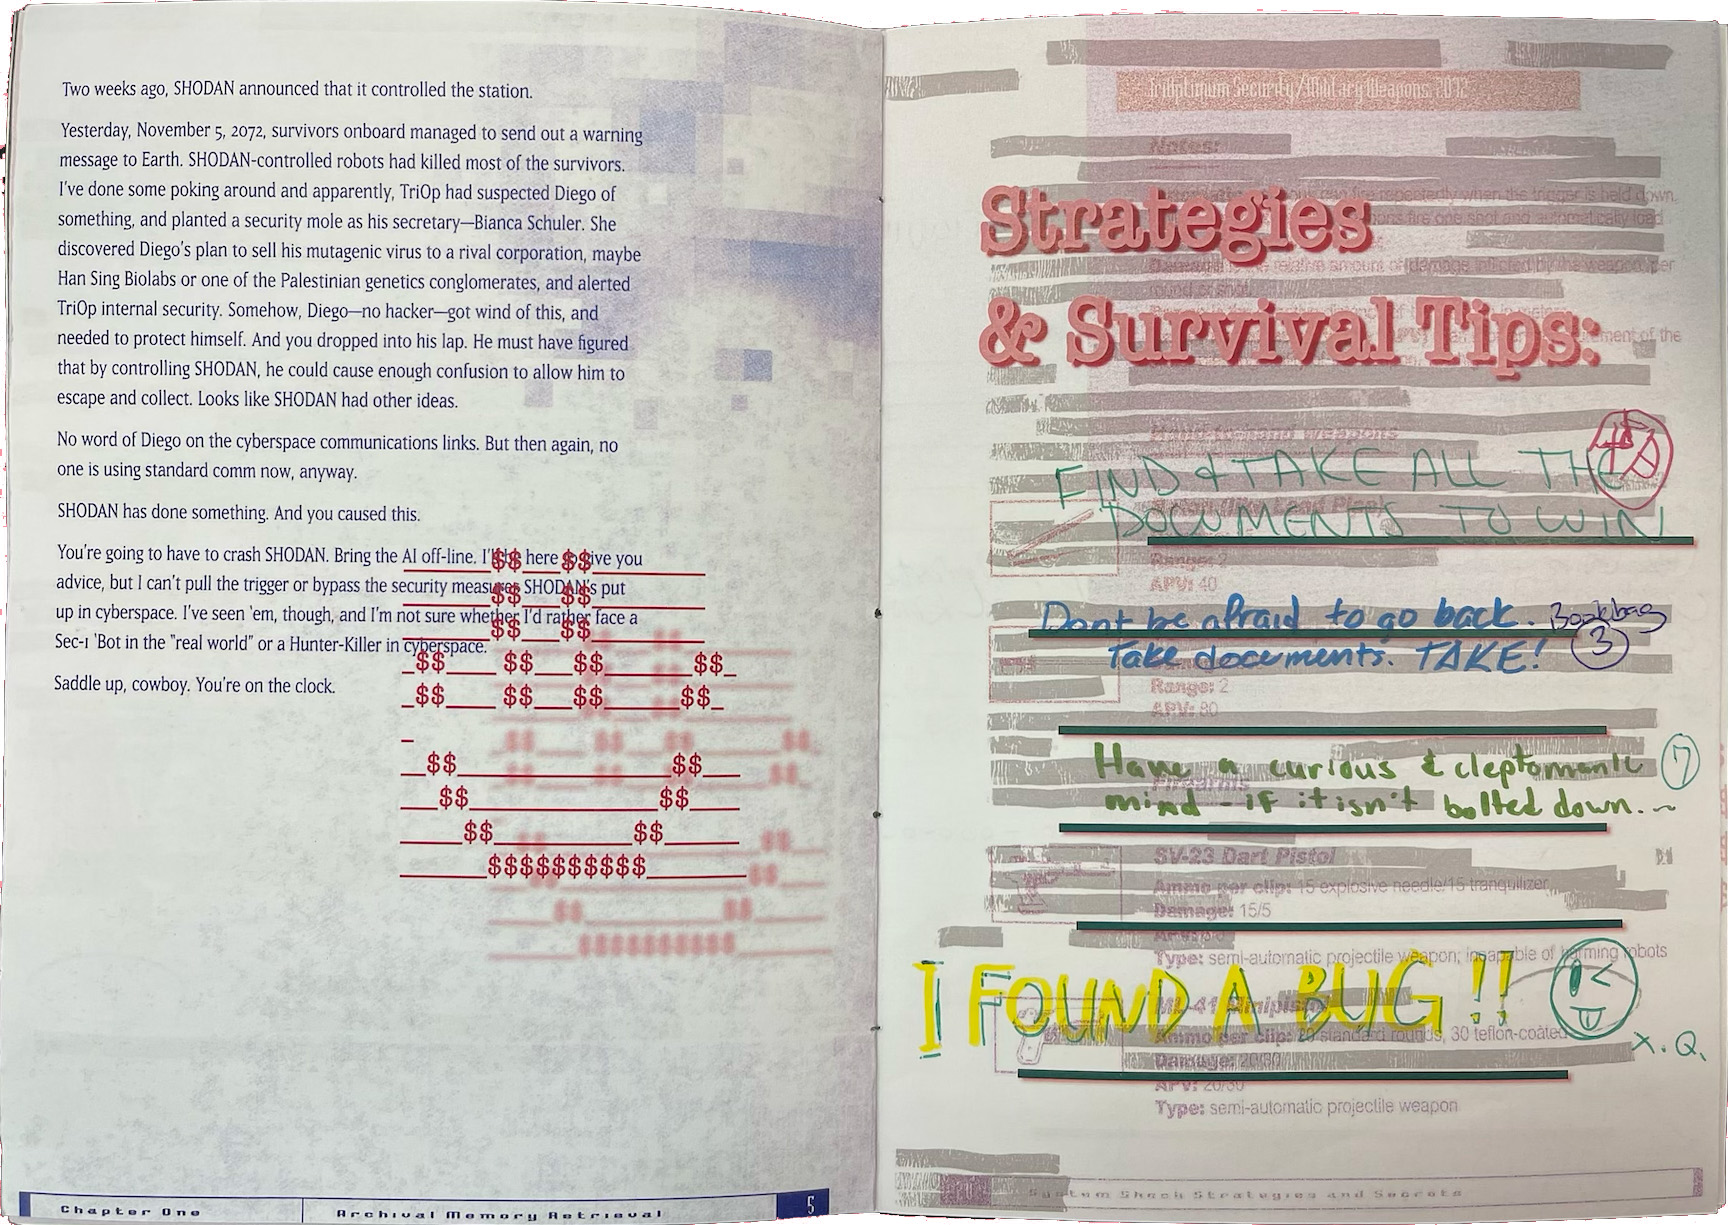 Two weeks ago, SHODAN announced that it controlled the station.
Yesterday, November 5, 2072, survivors onboard managed to send out a warning
message to Earth. SHODAN-controlled robots had killed most of the survivors.
I've done some poking around and apparently, TriOp had suspected Diego of
something, and planted a security mole as his secretary—Bianca Schuler. She
discovered Diego's plan to sell his mutagenic virus to a rival corporation, maybe
Han Sing Biolabs or one of the Palestinian genetics conglomerates, and alerted
TriOp internal security. Somehow, Diego—no hacker—got wind of this, and
needed to protect himself. And you dropped into his lap. He must have figured
that by controlling SHODAN, he could cause enough confusion to allow him to
escape and collect. Looks like SHODAN had other ideas.
No word of Diego on the cyberspace communications links. But then again, no
one is using standard comm now, anyway.
SHODAN has done something. And you caused this.
You're going to have to crash SHODAN. Bring the AI off-line. I'll be here to give you
advice, but I can't pull the trigger or bypass the security measures SHODAN's put
up in cyberspace. I've seen 'em, though, and I'm not sure whether I'd rather face a
Sec-1 'Bot in the "real world" or a Hunter-Killer in cyberspace.
Saddle up, cowboy. You're on the clock.
$$ $$
$$ $$
$$ $$
_$$____ $$___$$ ______$$_
_$$____ $$___$$ ______$$_
_
__$$________________$$___
___$$______________$$____
_____$$__________$$______
_______$$$$$$$$$$________
Chapter One
Archival Memory Retrieval
5
TriOptimum Security/Military Weapons, 2072
Notes:
Strategies
& Survival Tips:
Hand-to-hand weapons
FIND & TAKE ALL THE
DOCUMENTS TO WIN
Range: 2
APV: 40
Dont be afraid to go back. Bookbag
Take documents. TAKE! 3
Range: 2
APV: 80
Have a curious & cleptomanic 7
mind - if it isn't bolted down.~
Firearms
SV-23 Dart Pistol
Ammo per clip: 15 explosive needle/15 tranquilizer
Damage: 15/5
Type: semi-automatic projectile weapon; incapable of harming robots
I FOUND A BUG !!
X.Q.
ML-41 Minipistol
Ammo per clip: 20 standard rounds, 30 teflon-coated
Damage: 20/30
APV: 20/30
Type: semi-automatic projectile weapon
System Shock Strategies and Secrets